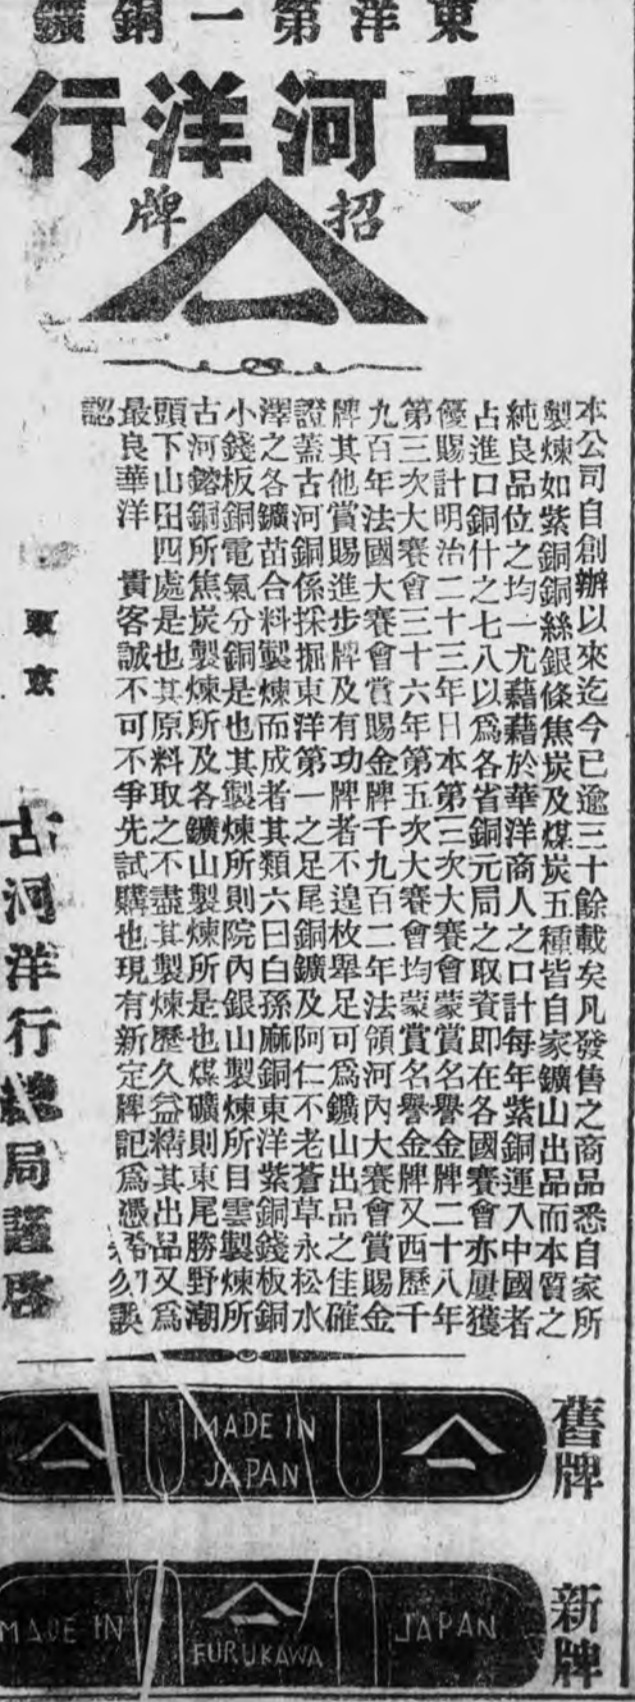 東洋第一銅鑛
古河洋行
招牌
本公司自創辦以來迄今已逾三十餘載矣凡發售之商品悉自家所
製煉如紫銅銅絲銀條焦炭及煤炭五種皆自家鑛山出品而本質之
純良品位之均一尤藉藉於華洋商人之口計每年紫銅運入中國者
占進口銅什之七八以爲各省銅元局之取資即在各國賽會亦屢獲
優賜計明治二十三年日本第三次大賽會蒙賞名譽金牌二十八年
第三次大賽會三十六年第五次大賽會均蒙賞名譽金牌又西歷千
九百年法國大賽會賞賜金牌千九百二年法領河內大賽會賞賜金
牌其他賞賜進步牌及有功牌者不遑枚舉足可爲鑛山出品之佳確
證蓋古河銅係採掘東洋第一之足尾銅鑛及阿仁不老蒼草永松水
澤之各鑛苗合料製煉而成者其類六曰白孫麻銅東洋紫銅錢板銅
小錢板銅電氣分銅是也其製煉所則院內銀山製煉所目雲製煉所
古河鎔銅所焦炭製煉所及各鑛山製煉所是也煤礦則東尾勝野潮
頭下山田四處是也其原料取之不盡其製煉歷久益精其出品又爲
最良華洋 貴客誠不可不爭先試購也現有新定牌記爲憑希勿誤
認
東京 古河洋行總局謹啓
舊牌
MADE IN
JAPAN
新牌
MADE IN
FURUKAWA
JAPAN